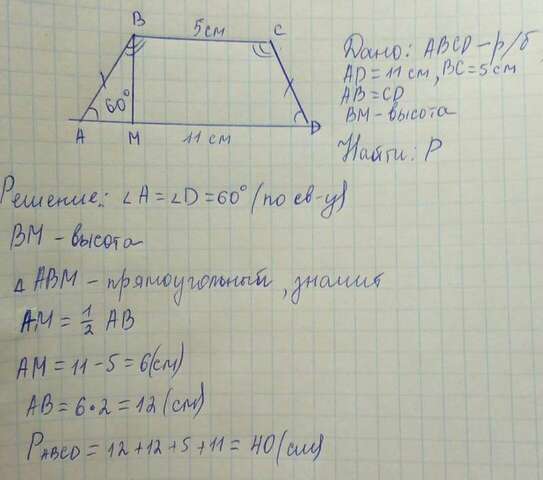 B 5 см C
60°
A M 11 см D
Дано: ABCD – р/б
AD = 11 см, BC = 5 см
AB = CD
BM – высота
Найти: P
Решение: ∠A = ∠D = 60° (по св-у)
BM – высота
△ ABM – прямоугольный, значит
AM = 1/2 AB
AM = 11 – 5 = 6 (см)
AB = 6 · 2 = 12 (см)
P ABCD = 12 + 12 + 5 + 11 = 40 (см)